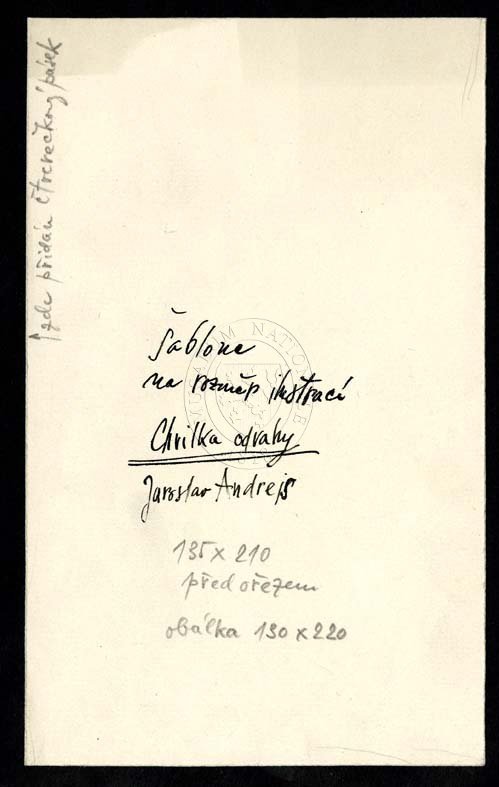 zde přidán čtverečkový pásek
Šablona
na rozměr ilustrací
Chvilka odvahy
Jaroslav Andrejs
135 x 210
před ořezem
obálka 130 x 220